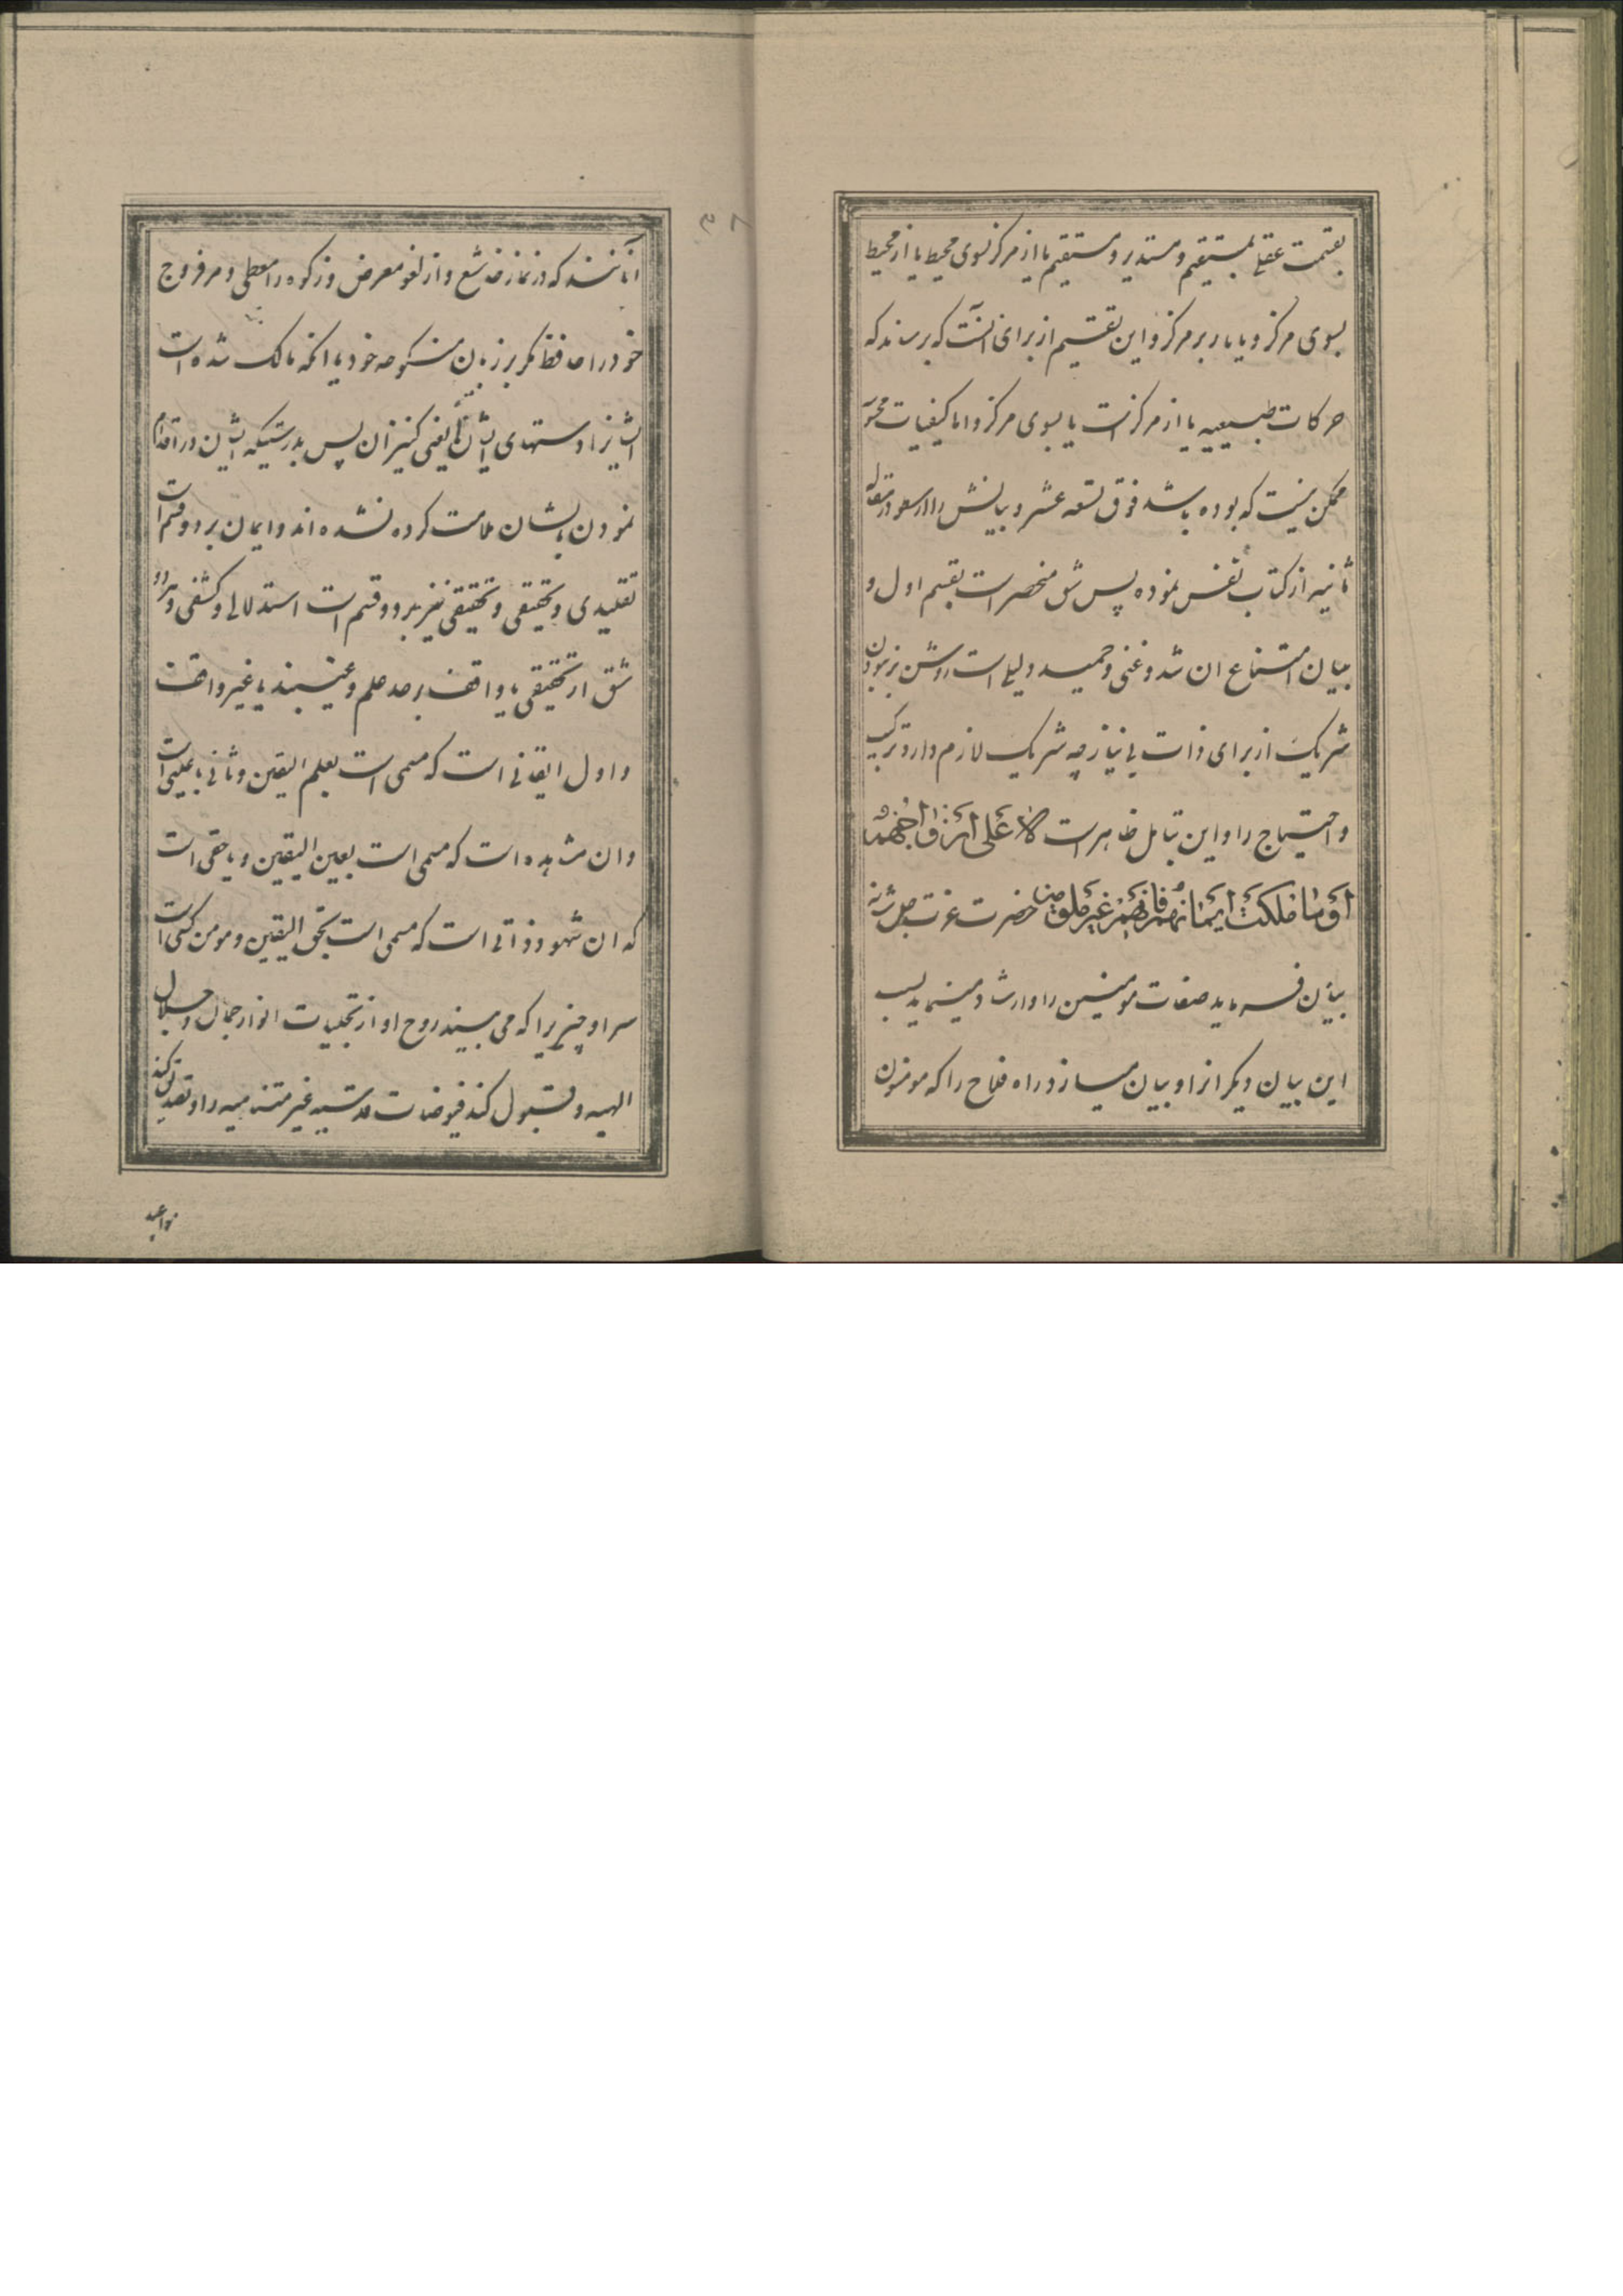 بقسمت عقلی بمستقیم و مستدیر و مستقیم یا از مرکز بسوی محیط یا از محیط
بسوی مرکز و یا یا ر بر مرکز و این تقسیم از برای انست که برساند که
حرکات طبیعیه یا از مرکز است یا بسوی مرکز و اما کیفیات
ممکن نیست که بوده باشد فوق تسعه عشر و بیانش را ارسطو در مقاله
ثانیه از کتاب نفس نموده پس شق منحصر است بقسم اول و
بیان امتناع ان شد و غنی و حمید دلیلی است روشن بر نبودن
شریک از برای ذات بی نیاز چه شریک لازم دارد ترکیب
و احتیاج را و این بتامل ظاهر است الا علی ازواجهم
او ما ملکت ایمانهم فانهم غیر ملومین حضرت عزت جل شانه
بیان فرماید صفات مومنین را و ارشاد مینماید بسبب
این بیان دیگر انرا و بیان میسازد راه فلاح را که مومنون
انانند که در نماز خاشع و از لغو معرض و زکوه را معطی و مر فروج
خود را حافظ مگر بر زنان منکوحه خود یا انکه مالک شده است
ایشانرا دستهای ایشان یعنی کنیزان پس بدرستیکه ایشان در اقدام
نمودن بایشان ملامت کرده نشده اند و ایمان بر دو قسم است
تقلیدی و تحقیقی و تحقیقی نیز بر دو قسم است استدلالی و کشفی و هر دو
شق از تحقیقی یا واقف بر حد علم و غیبند یا غیر واقف
و اول ایقانی است که مسمی است بعلم الیقین و ثانی یا عینی است
و ان مشاهده است که مسمی است بعین الیقین و یا حقی است
که ان شهود ذاتی است که مسمی است بحق الیقین و مومن کسی است
سر او چیزیرا که می بیند روح او از تجلیات انوار جمال و جلال
الهیه و قبول کند فیوضات قدسیه غیر متناهیه را و تصدیق کند